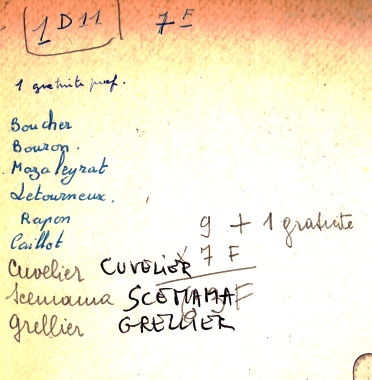 1D11 7F
1 gratuite prof.
Boucher
Bouron.
Mazaleyrat
Letourneux.
Rapon
Caillot
9 + 1 gratuite
x 7 F
Cuvelier CUVELIER
Scemama SCEMAMA
Grellier GRELLIER